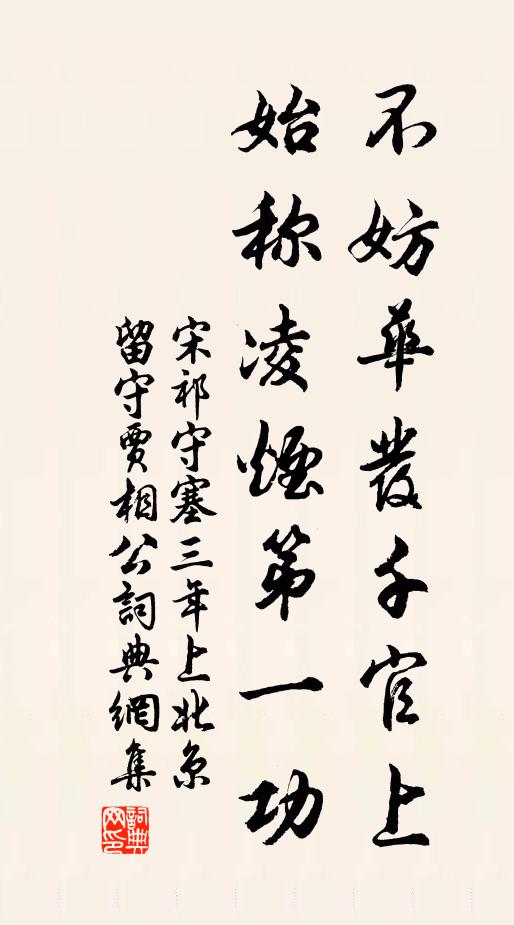 不妨華發千官上
始称凌煙第一功
宋祁守塞三年上北京
留守賈相公詞典網集
詞典網印